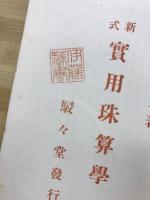 新式
實用珠算學
駸々堂發行